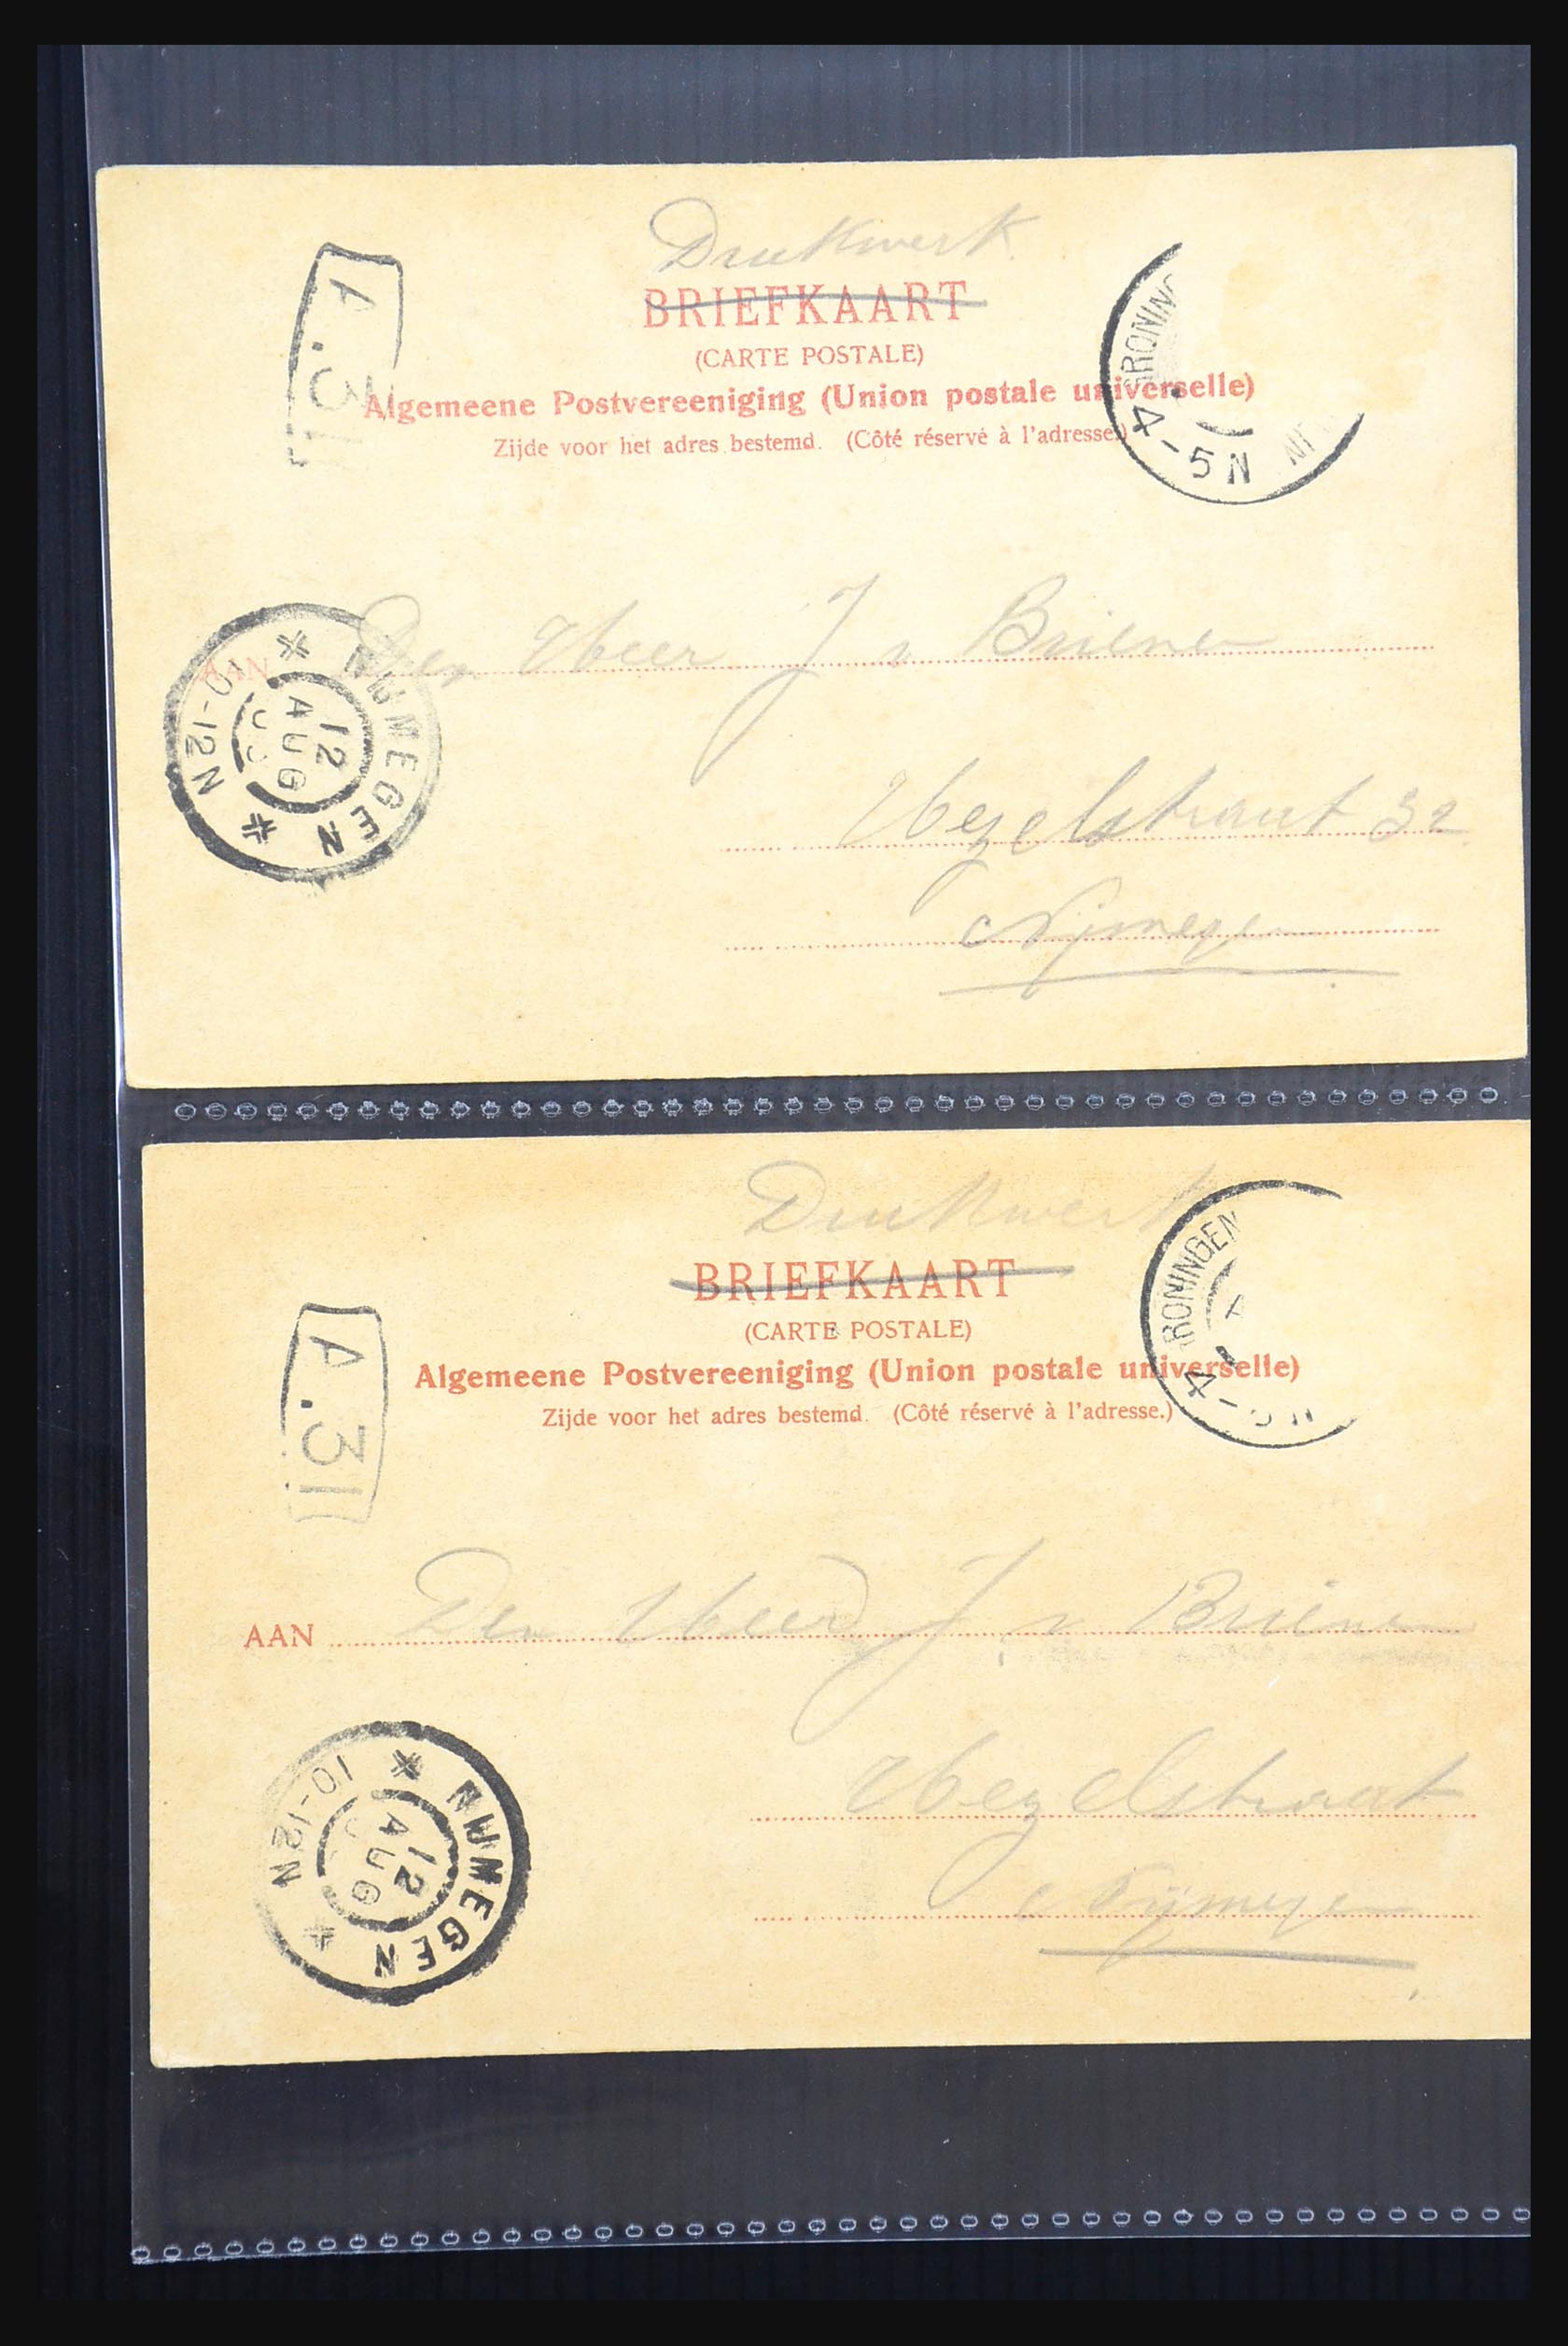 Drukwerk.
BRIEFKAART
(CARTE POSTALE)
Algemeene Postvereeniging (Union postale universelle)
Zijde voor het adres bestemd. (Côté réservé à l'adresse.)
A.
GRONING
4-5N
AAN Den Heer J v Briene
NIJMEGEN
12 AUG
0-12N
Hezelstraat 32
Nijmegen
Drukwerk
BRIEFKAART
(CARTE POSTALE)
Algemeene Postvereeniging (Union postale universelle)
Zijde voor het adres bestemd. (Côté réservé à l'adresse.)
A.31
RONINGEN
4-
AAN Den Heer J. v Briene
NIJMEGEN
12 AUG
10-12N
Hezelstraat
Nijmegen